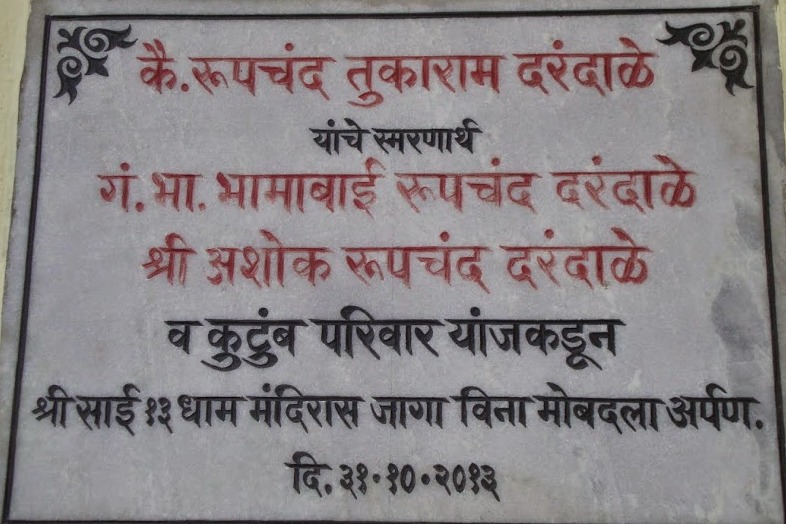 कै.रूपचंद तुकाराम दरंदाळे
यांचे स्मरणार्थ
गं.भा. भामाबाई रूपचंद दरंदाळे
श्री अशोक रूपचंद दरंदाळे
व कुटुंब परिवार यांजकडून
श्री साई १३ धाम मंदिरास जागा विना मोबदला अर्पण.
दि.३१·१०·२०१३